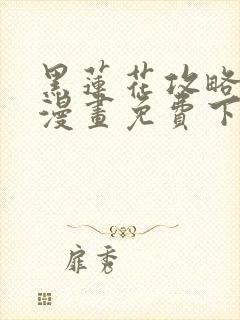 黑蓮花攻略
漫畫免費下
扉秀